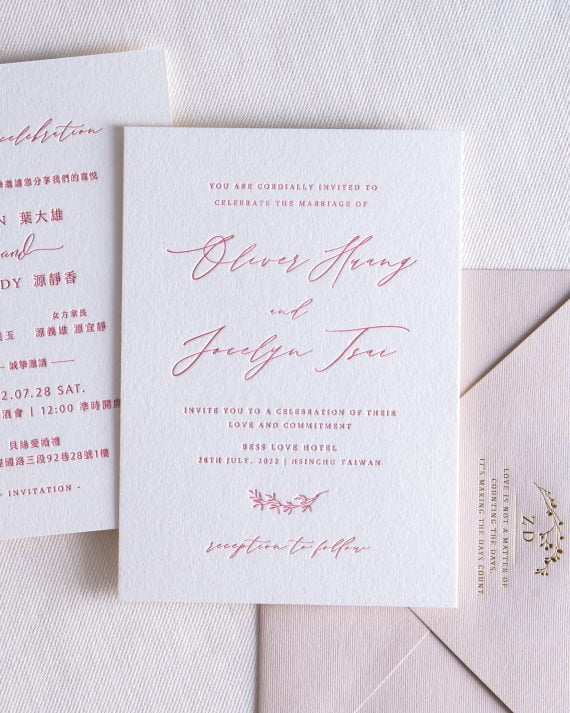 celebration
邀請您分享我們的喜悅
N 葉大雄
and
DY 源靜香
女方家長
玉 源義雄 源宜靜
誠摯邀請
2.07.28 SAT.
酒會 | 12:00 準時開席
貝絲愛婚禮
國路三段92巷28號1樓
- INVITATION -
YOU ARE CORDIALLY INVITED TO
CELEBRATE THE MARRIAGE OF
Oliver Huang
and
Jocelyn Tsai
INVITE YOU TO A CELEBRATION OF THEIR
LOVE AND COMMITMENT
BESS LOVE HOTEL
28TH JULY, 2022 | HSINCHU TAIWAN
reception to follow
ZD
LOVE IS NOT A MATTER OF
COUNTING THE DAYS.
IT'S MAKING THE DAYS COUNT.